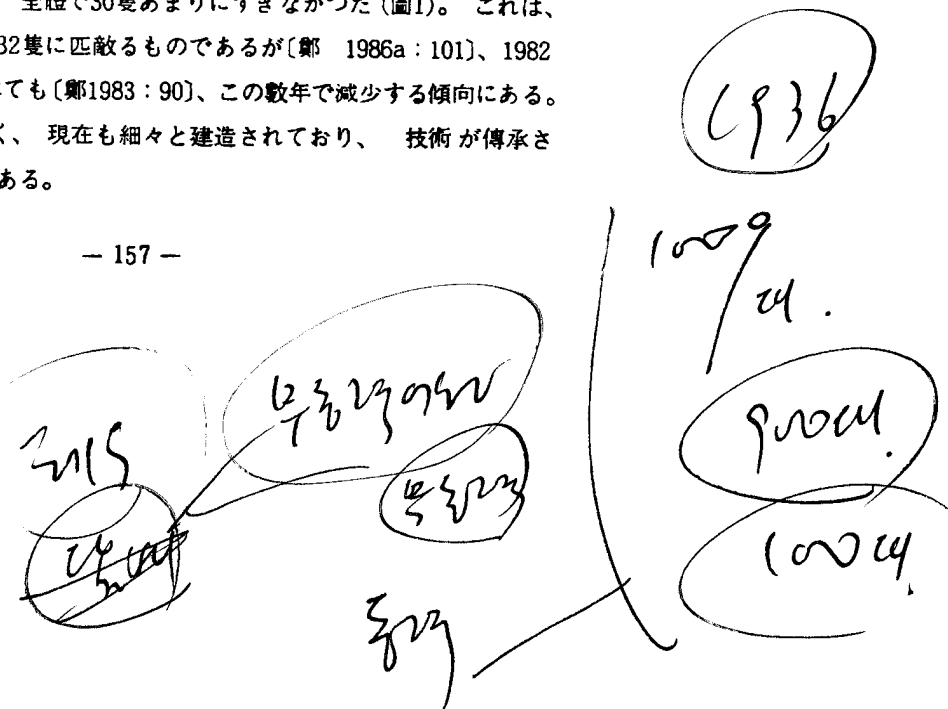 全體で30隻あまりにすぎなかつた(圖1)。 これは、
32隻に匹敵るものであるが〔鄭 1986a:101〕、1982
ても〔鄭1983:90〕、この數年で減少する傾向にある。
く、 現在も細々と建造されており、 技術が傳承さ
ある。
— 157 —
1936
대.
무동력어선
900대.
무동력
100대.
동력